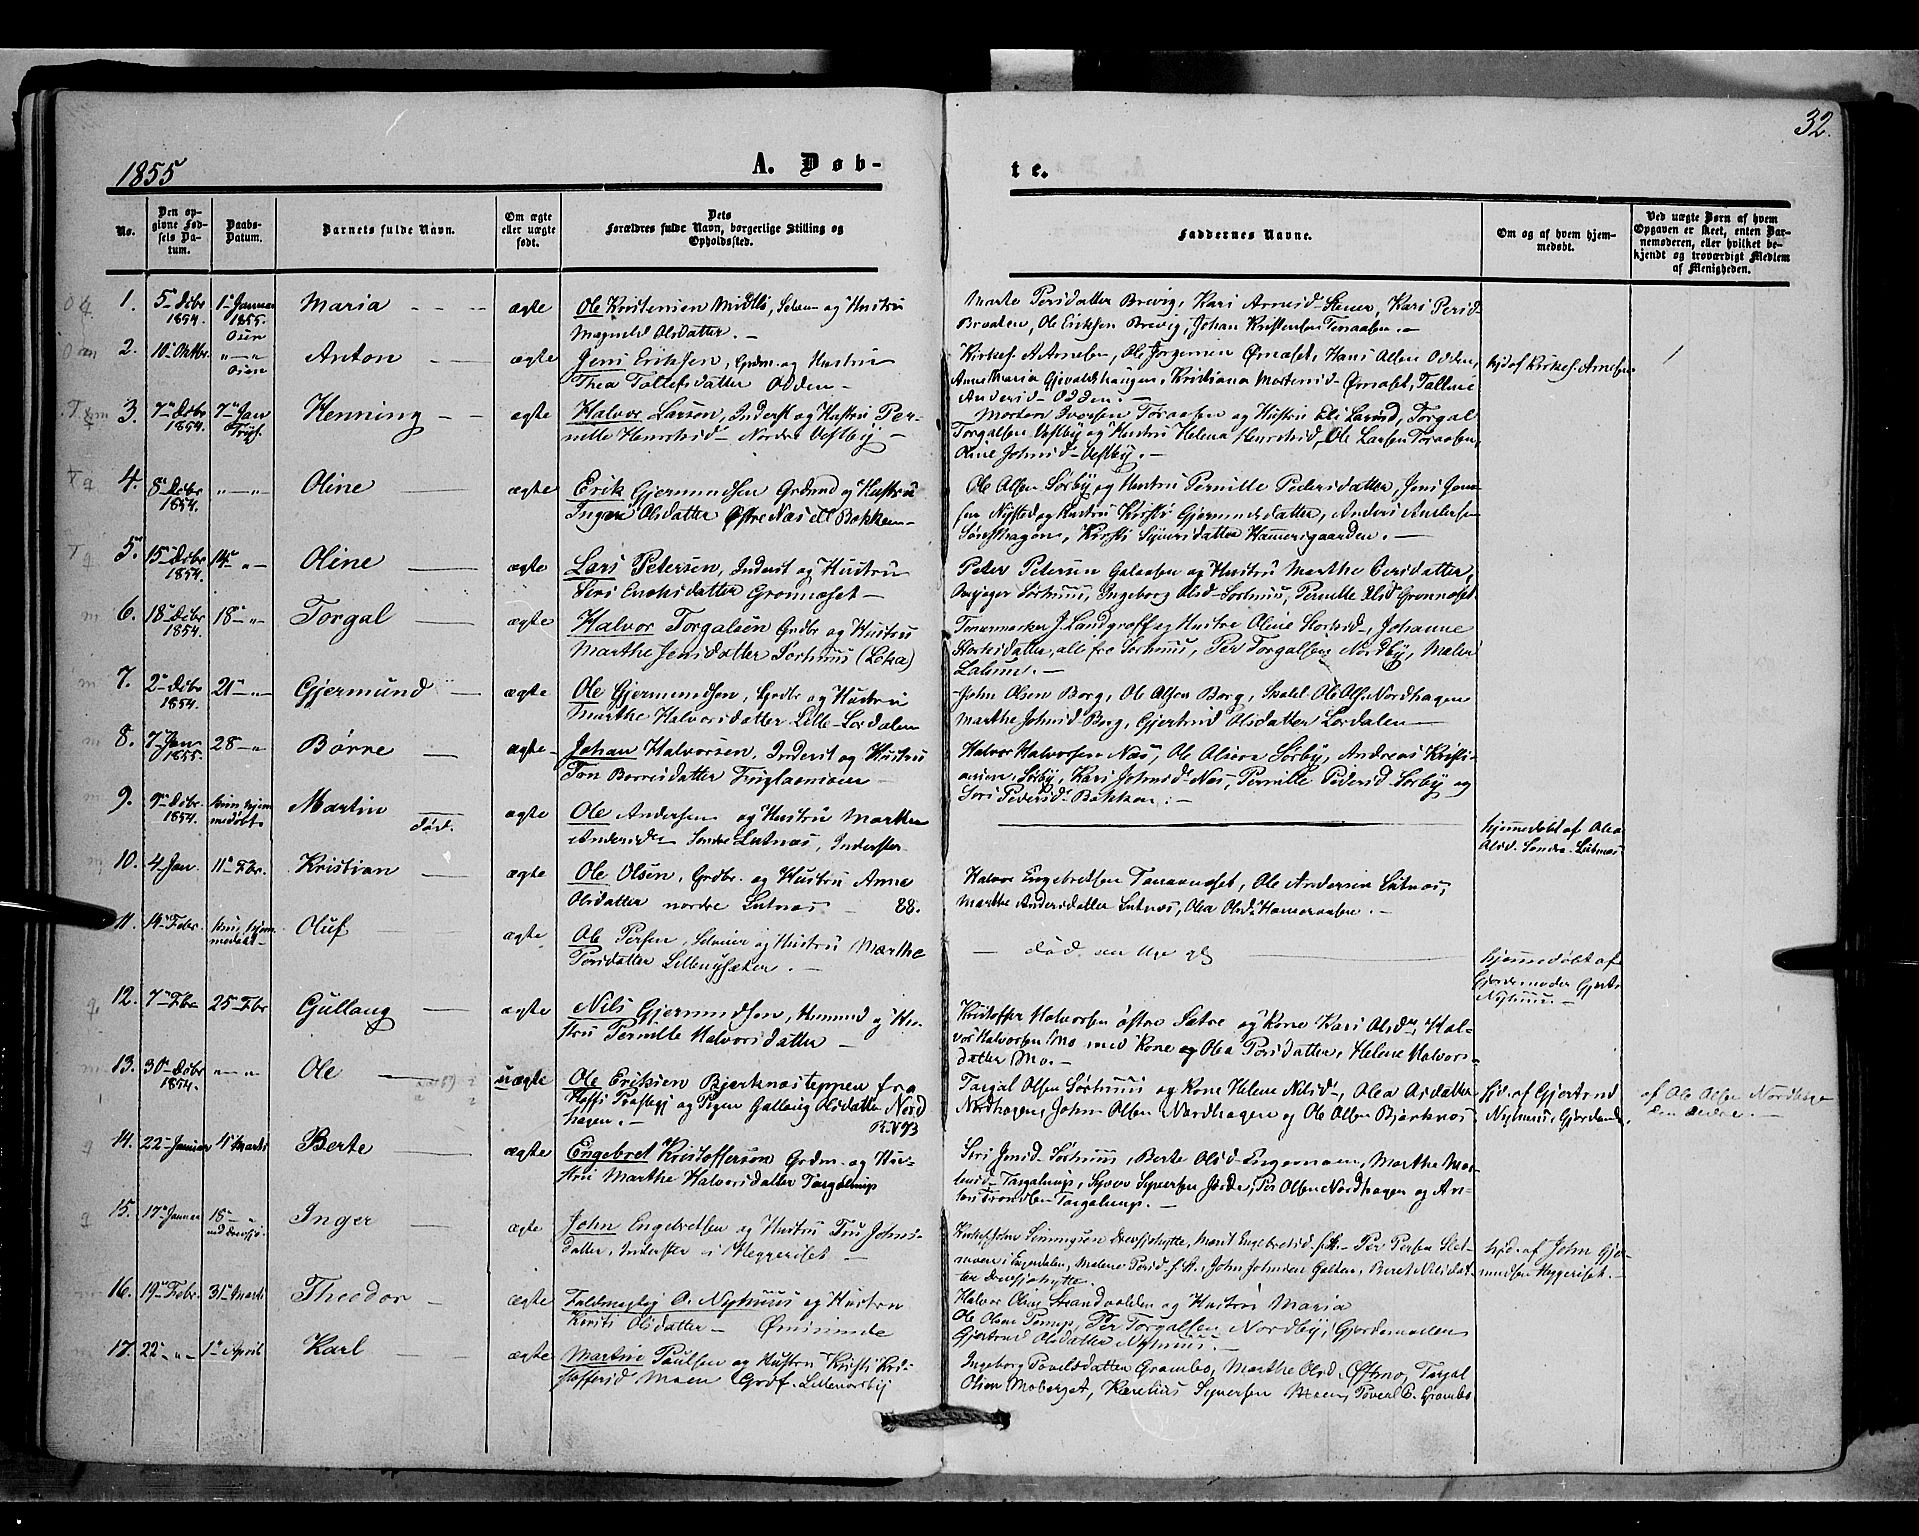 32.
1855
A. Døb-
te.
No.
Den op-
givne Fød-
sels Da-
tum.
Daabs-
Datum.
Barnets fulde Navn.
Om ægte
eller uægte
født.
Dets
Forældres fulde Navn, borgerlige Stilling og
Opholdssted.
Faddernes Navne.
Om og af hvem hjem-
medøbt.
Ved uægte Børn af hvem
Opgaven er skeet, enten Bar-
nemoderen, eller hvilket be-
kjendt og troværdigt Medlem
af Menigheden.
1. 5te Dcbr 1854. 1te Januar 1855. Maria ægte Ole Kristensen og Hustru
Magnild Olsdatter.
Marte Persdatter Brevig, Kari Arnesd Stener, Kari Persd
Braaten, Ole Eriksen Brevig, Johan Kristensen
2. 10de Oktbr. Anton ægte Jens Eriksen, Grdm. og Hustru
Thea Tollefsdatter Odden
Kirkes. A. Arnesen, Ole Jørgensen Ørnaset, Hans Olsen Odden,
Anne Maria Kristiana Mortensd Ørnaset,
Andersd Odden.
hjd af Kirkes. Arnesen
3. 7de Dcbr 1854. 7de Jan Henning ægte Halvor Larsen, Inderst og Hustru Per-
nille Henriksd Nordre Vestby
Morten Iversen og Hustru Eli Larsd, Torgal
Torgalsen Vestby og Hustru Helena Henriksd, Ole Larsen
Oline Johnsd Vestby.
4. 8de Dcbr 1854. Oline ægte Erik Gjermundsen Grdmd og Hustru
Inger Olsdatter Østre Næs Bakken
Ole Olsen Sørby og Hustru Pernille Pedersdatter, Jens Jen-
sen Nysted og Hustru Kirsti Gjermundsdatter, Anders Andersen
Kirsti Syversdatter Hammersgaarden.
5. 15de Dcbr 1854. 14de Oline ægte Lars Petersen, Inderst og Hustru
Siri Eriksdatter Grønnæset
Peter Petersen Galaasen og Hustru Marthe
Sorhuus, Ingeborg Olsd Sorhuus, Pernille Olsd Grønnæset.
6. 18de Dcbr 1854. 18de Torgal ægte Halvor Torgalsen Grdbr og Hustru
Marthe Jensdatter Sorhuus (Løka)
J. Landgraff og Hustru Oline Johanne
alle fra Sorhuus, Per Torgalsen Nordby,
7. 2de Dcbr 1854. 21de Gjermund ægte Ole Gjermundsen, Grdbr og Hustru
Marthe Halvorsdatter Lille Lørdalen
John Olsen Borg, Ole Olsen Borg, Ole Ols. Nordhagen
Marthe Johnsd Borg, Gjertrud Olsdatter Lørdalen
8. 7de Jan 1855. 28 Børre ægte Johan Halvorsen, Inderst og Hustru
Børresdatter
Halvor Halvorsen Næs, Ole Olsen Sørby, Andreas Kristi-
ansen Sørby, Kari Johnsd Næs, Pernille Pedersd Sørby og
Siri Pedersd Bakken.
9. 9de Dcbr. 1854. kun hjem
medøbt Martin død. ægte Ole Andersen og Hustru Marthe
Andersd Søndre Lutnæs, Inderster
hjemmedøbt af Olea
Olsd. Søndre Lutnæs
10. 4 Jan. 11te Fbr. Kristian ægte Ole Olsen, Grdbr. og Hustru Anne
Olsdatter nordre Lutnæs 88.
Halvor Engebretsen Ole Andersen Lutnæs,
Marthe Andersdatter Lutnæs, Olea Olsd. Hameraasen.
11. 14de Febr. kun hjem
medøbt Oluf ægte Ole Persen, Selveier og Hustru Marthe
Persdatter Lillenysæter.
død en Uge gl
hjemmedøbt af
Gjordemoder Gjertr
Nyhuus.
12. 7de Fbr 25de Fbr Gullaug ægte Nils Gjermundsen, Husmd og Hu-
stru Pernille Halvorsdatter
Kristoffer Halvorsen østre Sætre og Kone Kari Olsdr, Hal-
vor Halvorsen Mo med Kone og Olea Persdatter, Helene Halvors-
datter Mo.
13. 30te Dcbr 1854. Ole uægte Ole Eriksen Bjerknæsteppen fra
Hoffs Præstegj og Pigen Gullaug Olsdatter Nord
hagen.
Torgal Olsen Sørhuus og Kone Helene Nilsd, Olea Olsdatter
Nordhagen, John Olsen Nordhagen og Ole Olsen Bjerknæs
hjd. af Gjertrud
Nyhuus, Gjordemd.
af Ole Olsen Nordhage
den ældre.
14. 22de Januar 4de Marts Berte ægte Engebret Kristofferson Grdm. og Hu-
stru Marthe Halvorsdatter Torgalsrup
Siri Jensd Sørhuus, Berte Olsd Marthe
Torgalsrup, Syver Syversen Jorde, Per Olsen Nordhagen og
Trondsen Torgalsrup.
15. 17de Januar 18 Inger ægte John Engebretsen og Hustru Johns-
datter, Inderster i Heggeriset
Simensen Drevsjøhytte, Marit Engebretsd Per Persen Slet-
moen i Engerdalen, Malene Persd John Johnsen Galten, Beret Nilsdat-
ter Drevsjøhytte.
hjd. af John Gjer-
mundsen Heggeriset.
16. 19de Febr. 31te Marts Theodor ægte O. Nyhuus og Hustru
Kirsti Olsdatter Ørnsunde
Halvor Olsen Strandvolden og Hustru Maria
Ole Olsen Per Torgalsen Nordby, Gjordemoder
Gjertrud Olsdatter Nyhuus.
17. 22de 1te April Karl ægte Martin Paulsen og Hustru Kirsti Kri-
stoffersd Moen
Ingeborg Povelsdatter Grambo, Marthe Olsd. Østmo, Torgal
Olsen Moberget, Karelius Syversen Moen, Povel E. Grambo